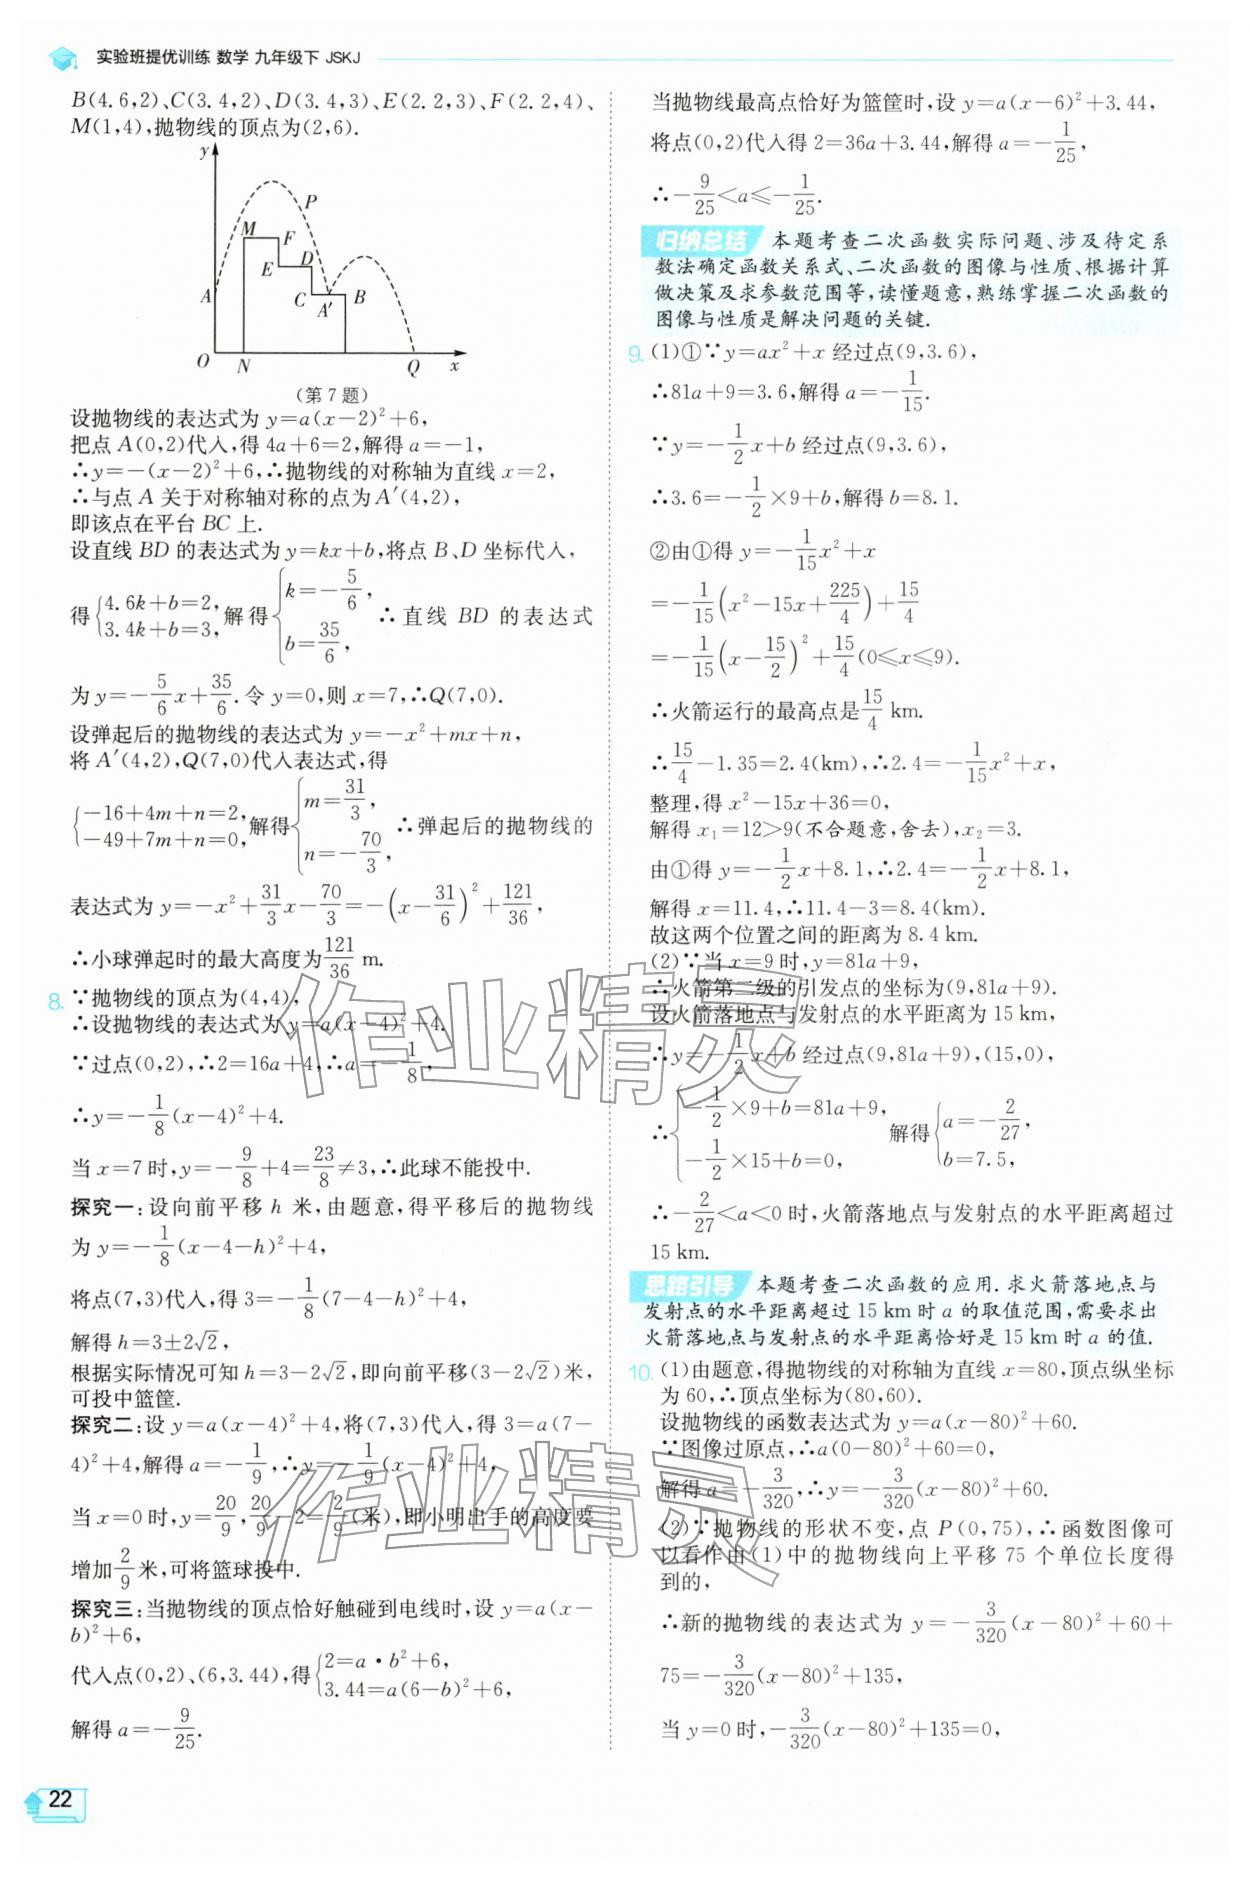 实验班提优训练 数学 九年级下 JSKJ
B(4.6,2)、C(3.4,2)、D(3.4,3)、E(2.2,3)、F(2.2,4)、
M(1,4),抛物线的顶点为(2,6).
y
P
M
F
E
D
A
C
A′
B
O
N
Q
x
(第7题)
设抛物线的表达式为 y=a(x-2)²+6,
把点A(0,2)代入,得4a+6=2,解得a=-1,
∴y=-(x-2)²+6,∴抛物线的对称轴为直线x=2,
∴与点A关于对称轴对称的点为A′(4,2),
即该点在平台BC上.
设直线BD的表达式为y=kx+b,将点B、D坐标代入,
得{4.6k+b=2, 3.4k+b=3, 解得{k=-5/6, b=35/6, ∴直线BD的表达式
为y=-5/6x+35/6.令y=0,则x=7,∴Q(7,0).
设弹起后的抛物线的表达式为y=-x²+mx+n,
将A′(4,2),Q(7,0)代入表达式,得
{-16+4m+n=2, -49+7m+n=0, 解得{m=31/3, n=-70/3, ∴弹起后的抛物线的
表达式为y=-x²+31/3x-70/3=-(x-31/6)²+121/36,
∴小球弹起时的最大高度为121/36 m.
8. ∵抛物线的顶点为(4,4),
∴设抛物线的表达式为y=a(x-4)²+4.
∵过点(0,2),∴2=16a+4,∴a=-1/8,
∴y=-1/8(x-4)²+4.
当x=7时,y=-9/8+4=23/8≠3,∴此球不能投中.
探究一:设向前平移h米,由题意,得平移后的抛物线
为y=-1/8(x-4-h)²+4,
将点(7,3)代入,得3=-1/8(7-4-h)²+4,
解得h=3±2√2,
根据实际情况可知h=3-2√2,即向前平移(3-2√2)米,
可投中篮筐.
探究二:设y=a(x-4)²+4,将(7,3)代入,得3=a(7-
4)²+4,解得a=-1/9,∴y=-1/9(x-4)²+4,
当x=0时,y=20/9,20/9-2=2/9(米),即小明出手的高度要
增加2/9米,可将篮球投中.
探究三:当抛物线的顶点恰好触碰到电线时,设y=a(x-
b)²+6,
代入点(0,2)、(6,3.44),得{2=a·b²+6, 3.44=a(6-b)²+6,
解得a=-9/25.
22
当抛物线最高点恰好为篮筐时,设y=a(x-6)²+3.44,
将点(0,2)代入得2=36a+3.44,解得a=-1/25,
∴-9/25<a≤-1/25.
归纳总结 本题考查二次函数实际问题、涉及待定系
数法确定函数关系式、二次函数的图像与性质、根据计算
做决策及求参数范围等,读懂题意,熟练掌握二次函数的
图像与性质是解决问题的关键.
9. (1)①∵y=ax²+x经过点(9,3.6),
∴81a+9=3.6,解得a=-1/15.
∵y=-1/2x+b经过点(9,3.6),
∴3.6=-1/2×9+b,解得b=8.1.
②由①得y=-1/15x²+x
=-1/15(x²-15x+225/4)+15/4
=-1/15(x-15/2)²+15/4(0≤x≤9).
∴火箭运行的最高点是15/4 km.
∴15/4-1.35=2.4(km),∴2.4=-1/15x²+x,
整理,得x²-15x+36=0,
解得x₁=12>9(不合题意,舍去),x₂=3.
由①得y=-1/2x+8.1,∴2.4=-1/2x+8.1,
解得x=11.4,∴11.4-3=8.4(km).
故这两个位置之间的距离为8.4 km.
(2)∵当x=9时,y=81a+9,
∴火箭第二级的引发点的坐标为(9,81a+9).
设火箭落地点与发射点的水平距离为15 km,
∴y=-1/2x+b经过点(9,81a+9),(15,0),
∴{-1/2×9+b=81a+9, -1/2×15+b=0, 解得{a=-2/27, b=7.5,
∴-2/27<a<0时,火箭落地点与发射点的水平距离超过
15 km.
思路引导 本题考查二次函数的应用.求火箭落地点与
发射点的水平距离超过15 km时a的取值范围,需要求出
火箭落地点与发射点的水平距离恰好是15 km时a的值.
10. (1)由题意,得抛物线的对称轴为直线x=80,顶点纵坐标
为60,∴顶点坐标为(80,60).
设抛物线的函数表达式为y=a(x-80)²+60.
∵图像过原点,∴a(0-80)²+60=0,
解得a=-3/320,∴y=-3/320(x-80)²+60.
(2)∵抛物线的形状不变,点P(0,75),∴函数图像可
以看作由(1)中的抛物线向上平移75个单位长度得
到的,
∴新的抛物线的表达式为y=-3/320(x-80)²+60+
75=-3/320(x-80)²+135,
当y=0时,-3/320(x-80)²+135=0,
作业精灵
作业精灵